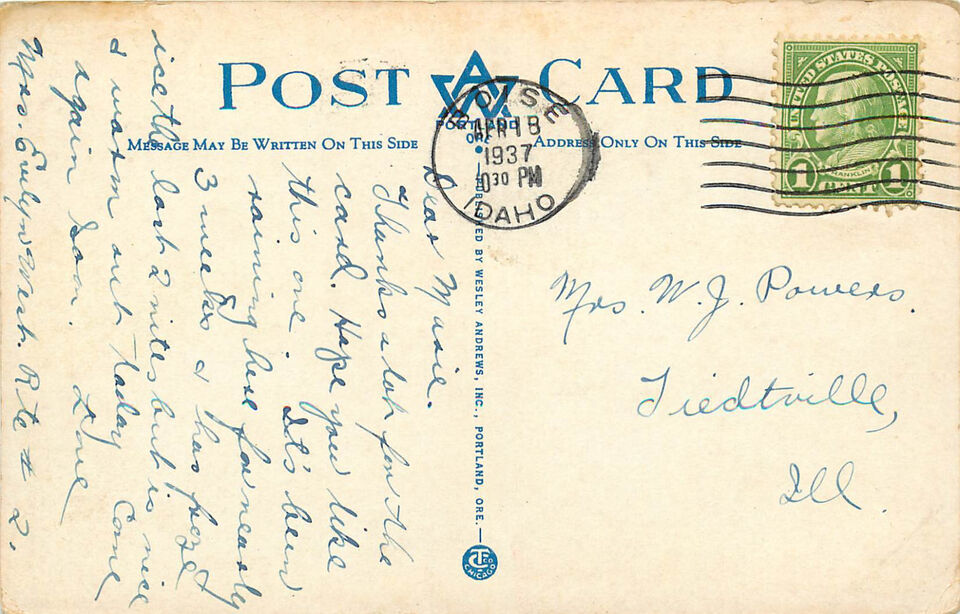 POST CARD
MESSAGE MAY BE WRITTEN ON THIS SIDE
ADDRESS ONLY ON THIS SIDE
AWA
PORTLAND
ORE
BOISE
APR 18
1937
10 30 PM
IDAHO
UNITED STATES POSTAGE
FRANKLIN
1 1
Dear Marie.
Thanks a lot for the
card. Hope you like
this one. It's been
raining here for nearly
3 weeks & has froze
ice the last 2 nites but is nice
& warm out today Come
again soon. Love
Mrs. Evelyn West. Rte # 2.
PUBLISHED BY WESLEY ANDREWS, INC., PORTLAND, ORE.
CT CO
CHICAGO
Mrs. W. J. Powers.
Tiedtville,
Ill.